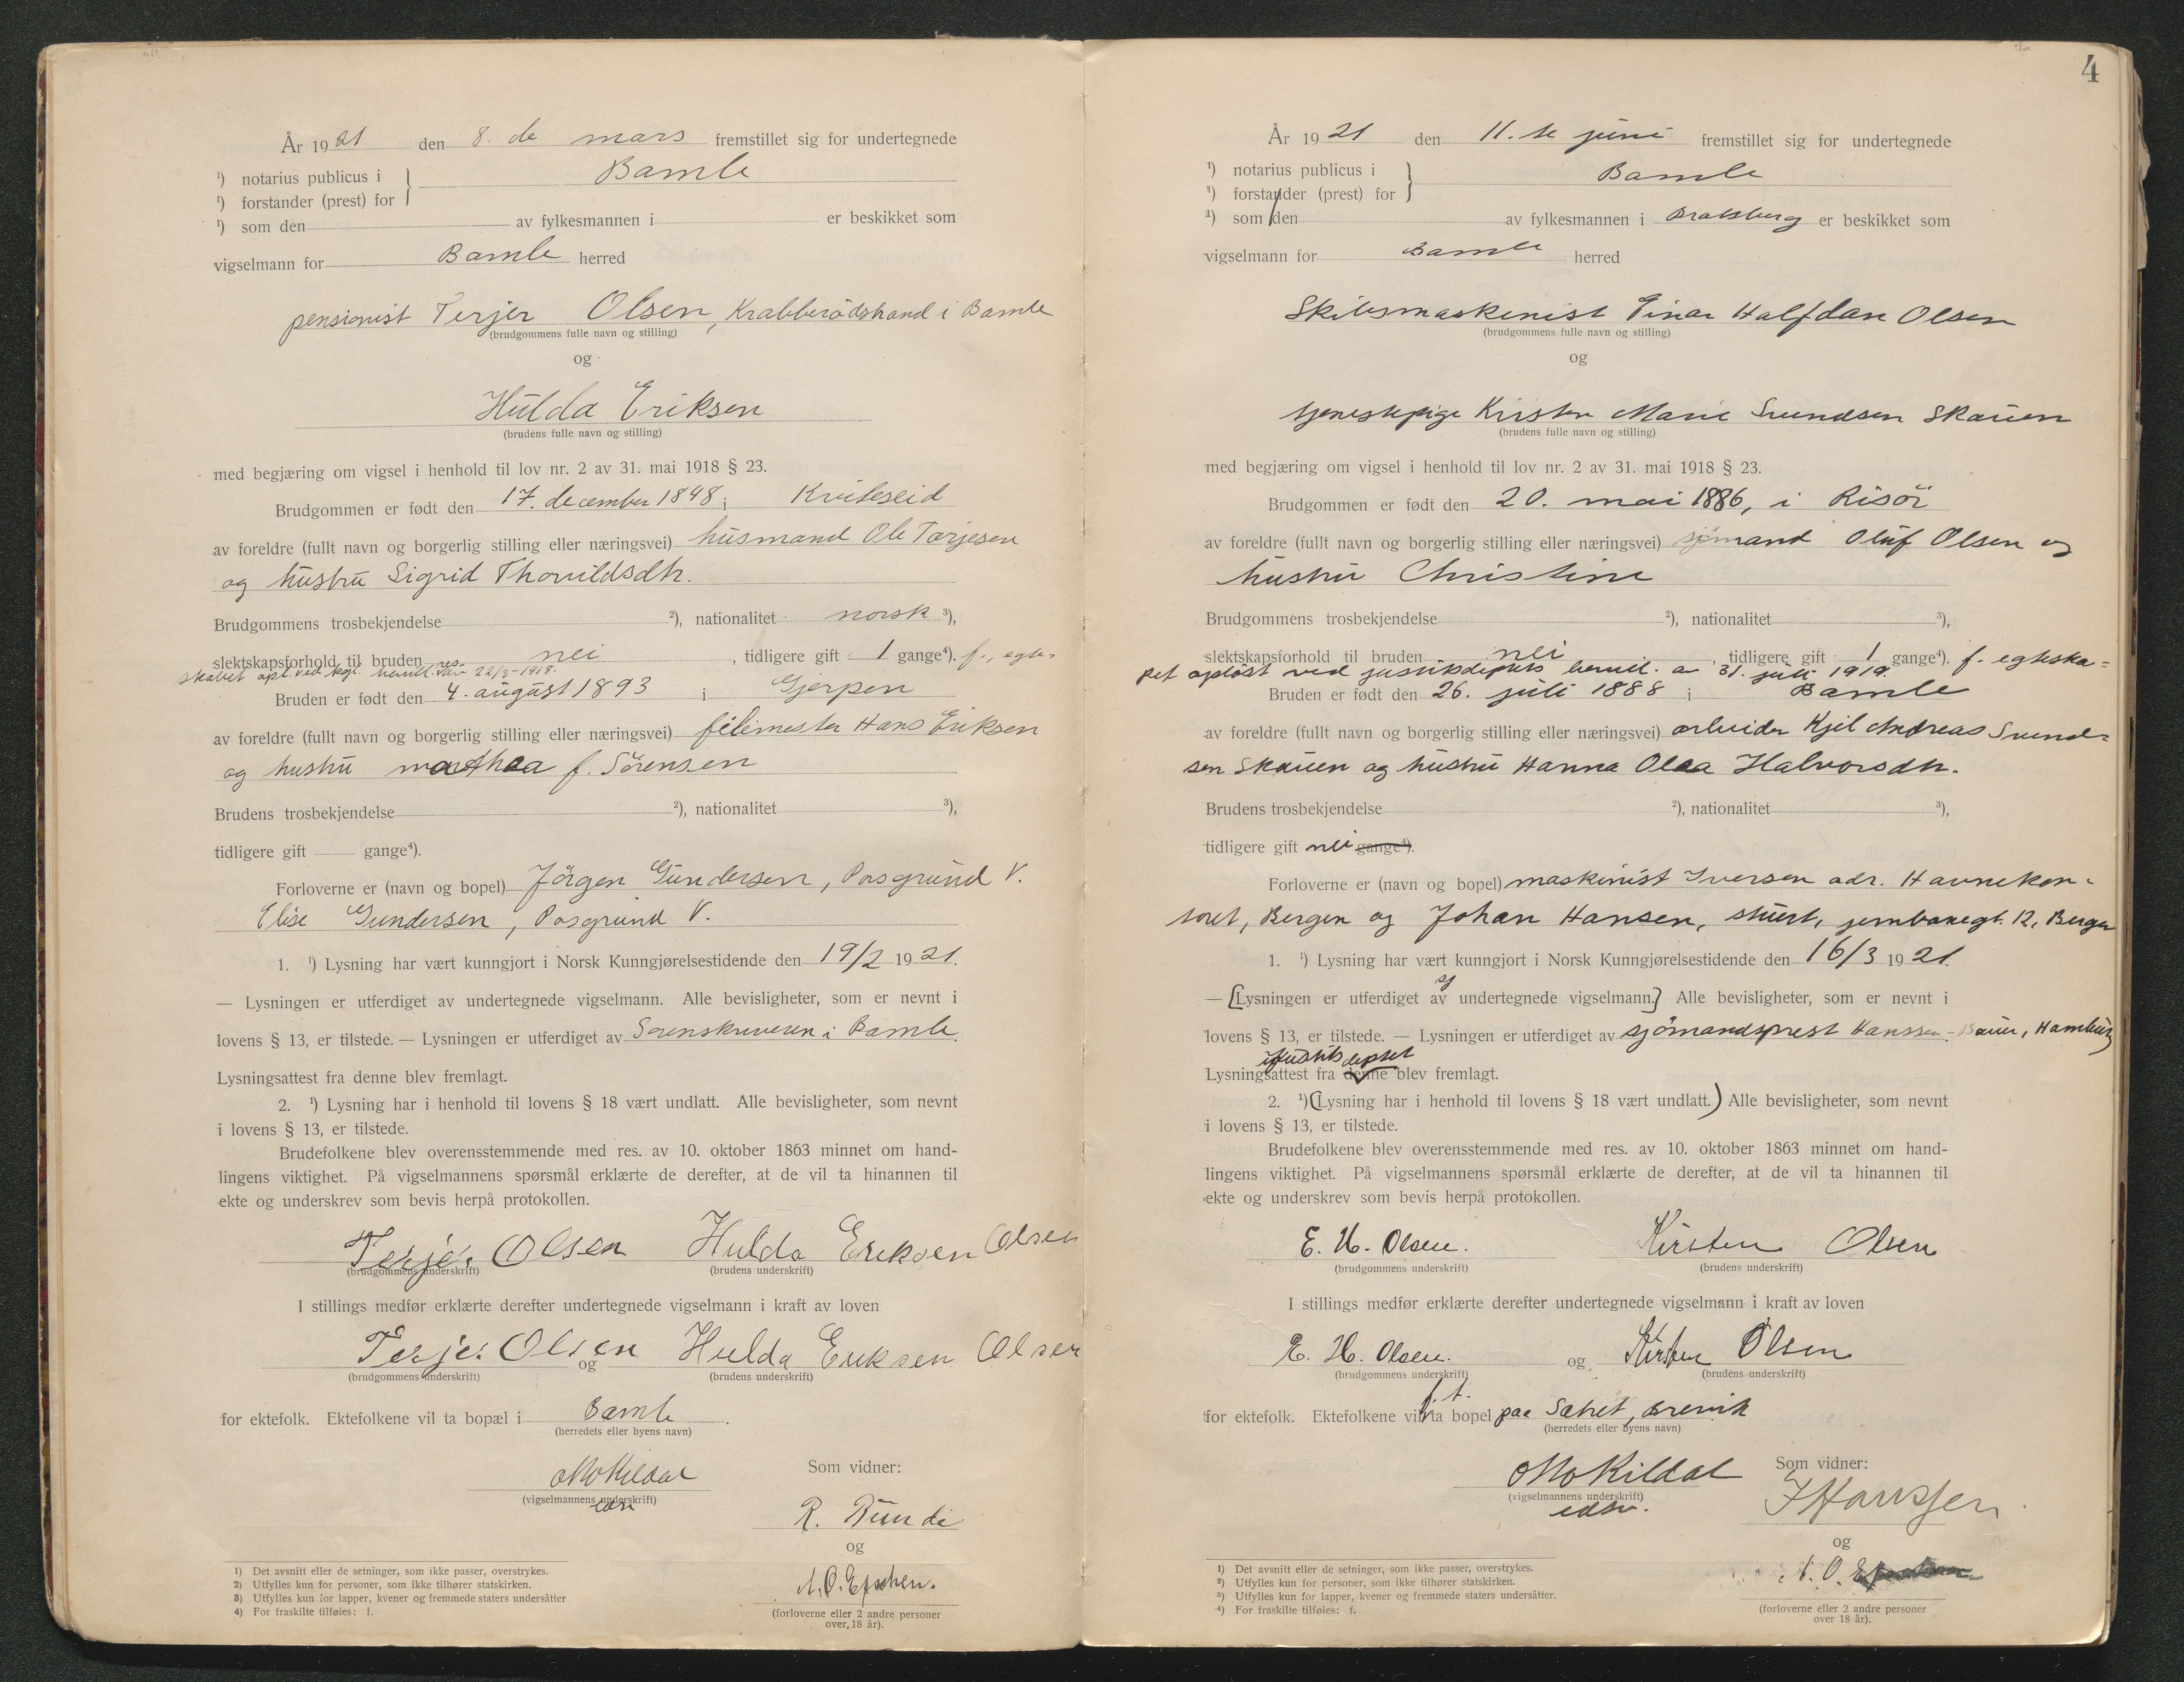 År 1921 den 8. de mars fremstillet sig for undertegnede
¹) notarius publicus i } Bamle
¹) forstander (prest) for
¹) som den av fylkesmannen i er beskikket som
vigselmann for Bamle herred
pensionist Terjer Olsen, Krabberödstrand i Bamle
(brudgommens fulle navn og stilling)
og
Hulda Eriksen
(brudens fulle navn og stilling)
med begjæring om vigsel i henhold til lov nr. 2 av 31. mai 1918 § 23.
Brudgommen er født den 17. december 1848 i Kviteseid
av foreldre (fullt navn og borgerlig stilling eller næringsvei) husmand Ole Tarjesen
og hustru Sigrid Thorvildsdtr.
Brudgommens trosbekjendelse ²), nationalitet norsk ³),
slektskapsforhold til bruden nei, tidligere gift 1 gange⁴). f., egte-
skabet opl. ved kgl. res. 22/3-1918.
Bruden er født den 4. august 1893 i Gjerpen
av foreldre (fullt navn og borgerlig stilling eller næringsvei) Hans Eriksen
og hustru f. Sörensen
Brudens trosbekjendelse ²), nationalitet ³),
tidligere gift gange⁴).
Forloverne er (navn og bopel) Jörgen Gundersen, Porsgrund V.
Elise Gundersen, Posgrund V.
1. ¹) Lysning har vært kunngjort i Norsk Kunngjørelsestidende den 19/2 1921.
— Lysningen er utferdiget av undertegnede vigselmann. Alle bevisligheter, som er nevnt i
lovens § 13, er tilstede. — Lysningen er utferdiget av Sorenskriveren i Bamle.
Lysningsattest fra denne blev fremlagt.
2. ¹) Lysning har i henhold til lovens § 18 vært undlatt. Alle bevisligheter, som nevnt
i lovens § 13, er tilstede.
Brudefolkene blev overensstemmende med res. av 10. oktober 1863 minnet om hand-
lingens viktighet. På vigselmannens spørsmål erklærte de derefter, at de vil ta hinannen til
ekte og underskrev som bevis herpå protokollen.
Terjer Olsen Hulda Eriksen Olsen
(brudgommens underskrift) (brudens underskrift)
I stillings medfør erklærte derefter undertegnede vigselmann i kraft av loven
Terjer Olsen og Hulda Eriksen Olsen
(brudgommens underskrift) (brudens underskrift)
for ektefolk. Ektefolkene vil ta bopæl i Bamle.
(herredets eller byens navn)
Kildal
(vigselmannens underskrift)
Som vidner:
R.
og
A. O.
(forloverne eller 2 andre personer
over, 18 år).
1) Det avsnitt eller de setninger, som ikke passer, overstrykes.
2) Utfylles kun for personer, som ikke tilhører statskirken.
3) Utfylles kun for lapper, kvener og fremmede staters undersåtter
4) For fraskilte tilføies: f.
4
År 1921 den 11. te juni fremstillet sig for undertegnede
¹) notarius publicus i } Bamle
²) forstander (prest) for
²) som den av fylkesmannen i Bratsberg er beskikket som
vigselmann for Bamle herred
Skibsmaskinist Einar Halfdan Olsen
(brudgommens fulle navn og stilling)
og
tjenestepige Kirsten Marie Svendsen Skauen
(brudens fulle navn og stilling)
med begjæring om vigsel i henhold til lov nr. 2 av 31. mai 1918 § 23.
Brudgommen er født den 20. mai 1886, i Risör
av foreldre (fullt navn og borgerlig stilling eller næringsvei) sjömand Oluf Olsen og
hustru Christine
Brudgommens trosbekjendelse ²), nationalitet ³),
slektskapsforhold til bruden nei, tidligere gift 1 gange⁴). f. egteska-
pet oplöst ved justisdeptets bevill. av 31. juli 1919.
Bruden er født den 26. juli 1888 i Bamle
av foreldre (fullt navn og borgerlig stilling eller næringsvei) arbeider Kjel Andreas Svend-
sen Skauen og hustru Hanna Olea Halvorsdtr.
Brudens trosbekjendelse ²), nationalitet ³),
tidligere gift nei gange⁴).
Forloverne er (navn og bopel) maskinist Iversen adr. Havnekon-
toret, Bergen og Johan Hansen, stuert, jernbanegt. 12, Bergen
1. ¹) Lysning har vært kunngjort i Norsk Kunngjørelsestidende den 16/3 1921.
— [Lysningen er utferdiget av undertegnede vigselmann.] Alle bevisligheter, som er nevnt i
lovens § 13, er tilstede. — Lysningen er utferdiget av sjömandsprest Hanssen-Bauer, Hamburg
justisdeptet
Lysningsattest fra denne blev fremlagt.
2. ¹) (Lysning har i henhold til lovens § 18 vært undlatt.) Alle bevisligheter, som nevnt
i lovens § 13, er tilstede.
Brudefolkene blev overensstemmende med res. av 10. oktober 1863 minnet om hand-
lingens viktighet. På vigselmannens spørsmål erklærte de derefter, at de vil ta hinannen til
ekte og underskrev som bevis herpå protokollen.
E. H. Olsen. Kirsten Olsen
(brudgommens underskrift) (brudens underskrift)
I stillings medfør erklærte derefter undertegnede vigselmann i kraft av loven
E. H. Olsen. og Kirsten Olsen
(brudgommens underskrift) (brudens underskrift)
f. t.
for ektefolk. Ektefolkene vil ta bopel paa Sætret, Brevik
(herredets eller byens navn)
Kildal
(vigselmannens underskrift)
edsv.
Som vidner:
J Hanssen
og
A. O.
(forloverne eller 2 andre personer
over 18 år).
1) Det avsnitt eller de setninger, som ikke passer, overstrykes.
²) Utfylles kun for personer, som ikke tilhører statskirken.
³) Utfylles kun for lapper, kvener og fremmede staters undersåtter.
⁴) For fraskilte tilføies: f.